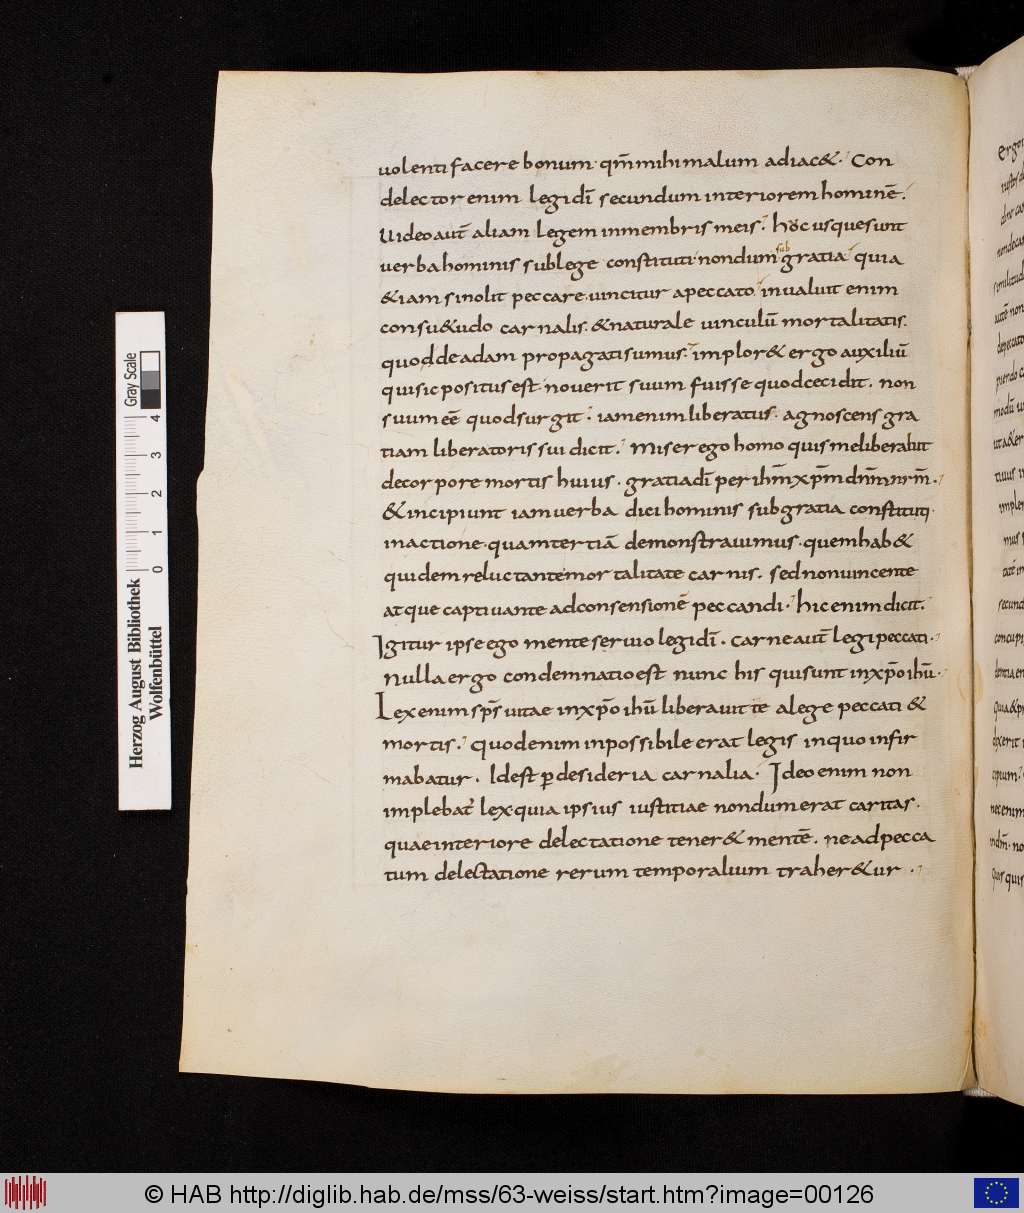 uolenti facere bonum · qm̄ mihi malum adiac&. Con
delector enim legi dī secundum interiorem hominē.
Uideo aut̄ aliam legem in membris meis. hoc usque sunt
uerba hominis sub lege constituti nondum sub gratia quia
&iam si nolit peccare uincitur a peccato inualuit enim
consu&udo carnalis. & naturale uinculū mortalitatis.
quod de adam propagati sumus. implor& ergo auxiliū
qui sic positus est · nouerit suum fuisse quod cecidit. non
suum eē quod surgit. iam enim liberatus. agnoscens gra
tiam liberatoris sui dicit. Miser ego homo quis me liberabit
de corpore mortis huius. gratia dī per ihm̄ xp̄m dnm̄ nrm̄.
& incipiunt iam uerba dici hominis sub gratia constituti
in actione · quam tertiā demonstrauimus · quem hab&
quidem reluctante mortalitate carnis. sed non uincente
atque captiuante ad consensionē peccandi. hic enim dicit.
Igitur ipse ego mente seruio legi dī. carne aut̄ legi peccati.
Nulla ergo condemnatio est nunc his qui sunt in xp̄o ihū.
Lex enim sp̄s uitae in xp̄o ihū liberauit te a lege peccati &
mortis. quod enim inpossibile erat legis in quo infir
mabatur. Id est p̱ desideria carnalia. Ideo enim non
implebat᷑ lex · quia ipsius iustitiae nondum erat caritas.
quae interiore delectatione tener& mentē. ne ad pecca
tum delectatione rerum temporalium traher&ur.
Gray Scale
0 1 2 3 4
Herzog August Bibliothek
Wolfenbüttel
© HAB http://diglib.hab.de/mss/63-weiss/start.htm?image=00126